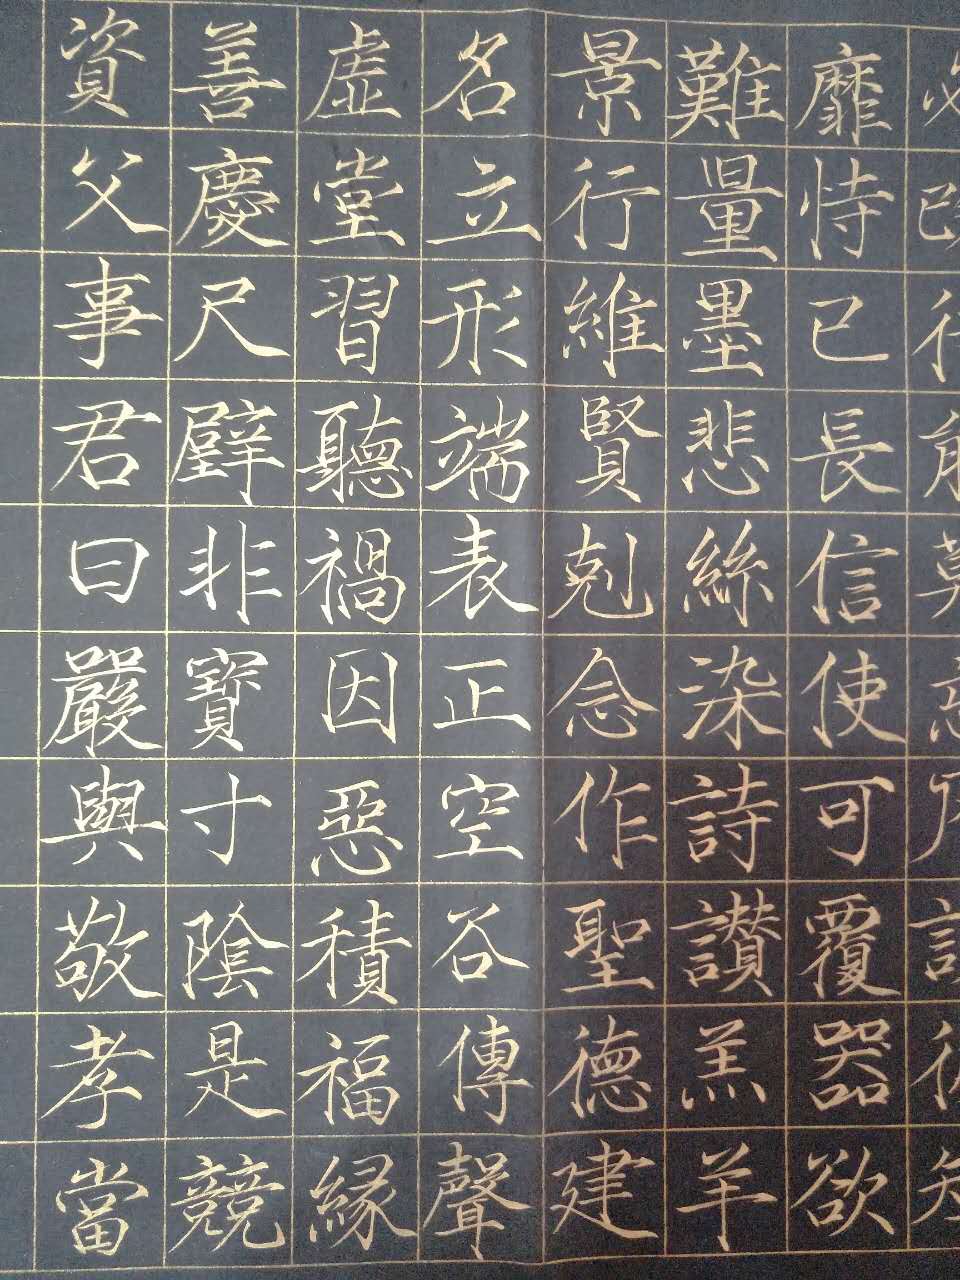 靡恃已長信使可覆器欲
難量墨悲絲染詩讚羔羊
景行維賢剋念作聖德建
名立形端表正空谷傳聲
虛堂習聽禍因惡積福緣
善慶尺璧非寶寸陰是競
資父事君曰嚴與敬孝當